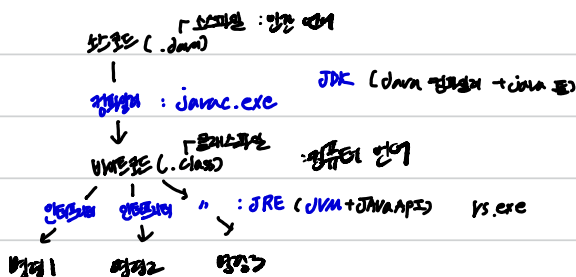 소스파일 : 인간 언어
소스코드 (.java)
JDK (Java 컴파일러 + java 툴)
컴파일러 : javac.exe
클래스파일
바이트코드 (.class) : 컴퓨터 언어
인터프리터 인터프리터 〃 : JRE (JVM+JAVA API) vs .exe
명령1 명령2 명령3